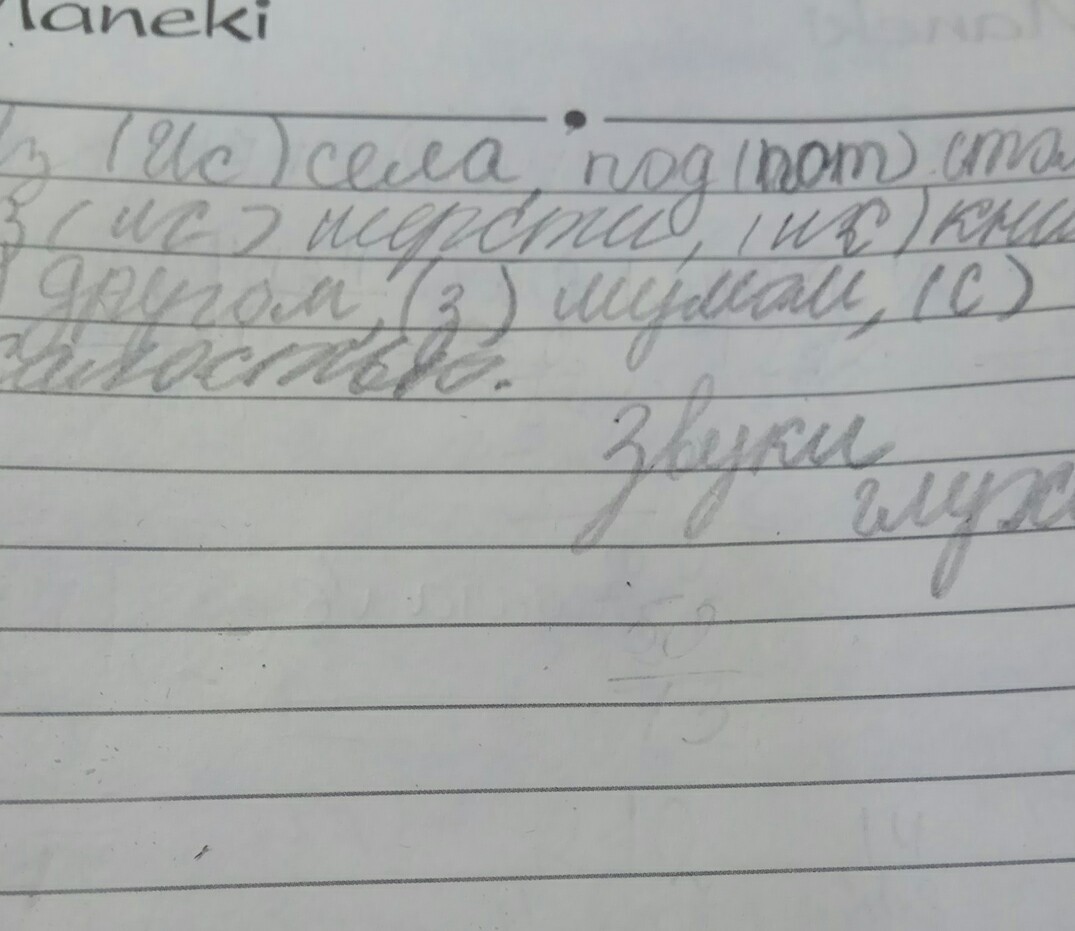 Maneki
з (Ис) села, под (пот) стол
з (ис) шерсти, (ис) кни
другом, (з) шумом, (с)
звуки
глух